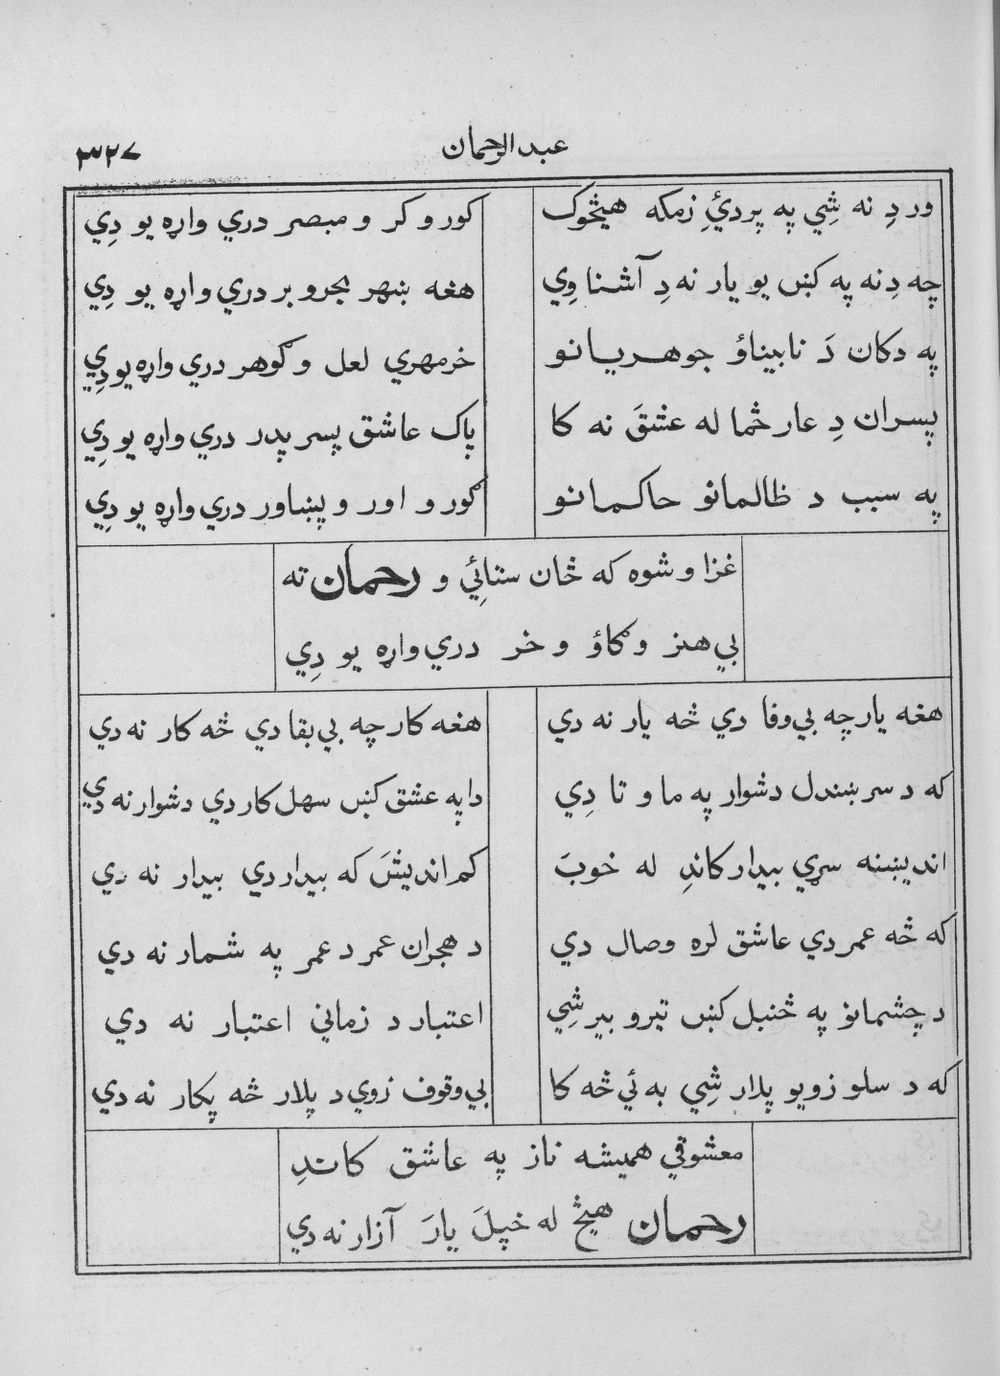 عبدالرحمان
٣٢٧
ور دِ نه شِي په پردئِ زمکه هيڅوک
کور و کر و مبصر دري واړه يو دِي
چه دِ نه په کښ يو يار نه دِ آشنا وِي
هغه ښهر بحر و بر دري واړه يو دِي
په دکان دَ نابيناؤ جوهريانو
خرمهري لعل و ګوهر دري واړه يو دِي
پسران دِ عار څما له عشقَ نه کا
پاک عاشق پسر پدر دري واړه يو دِي
په سبب د ظالمانو حاکمانو
ګور و اور و پښاور دري واړه يو دِي
غزا و شوه که ځان ستائِي و رحمان ته
بي هنر و ګاؤ و خر دري واړه يو دِي
هغه يار چه بي وفا دي څه يار نه دي
هغه کار چه بي بقا دي څه کار نه دي
که د سر ښندل دشوار په ما و تا دِي
دا په عشق کښ سهل کار دي دشوار نه دي
انديښنه سړي بيدار کاندِ له خوبَ
کم انديشَ که بيدار دي بيدار نه دي
که څه عمر دي عاشق لره وصال دي
د هجران عمر د عمر په شمار نه دي
د چشمانو په څنبل کښ تېرو بير شِي
اعتبار د زماني اعتبار نه دي
که د سلو زويو پلار شِي به ئي څه کا
بي وقوف زوي د پلار څه پکار نه دي
معشوقي هميشه ناز په عاشق کاندِ
رحمان هيڅ له خپلَ يارَ آزار نه دي